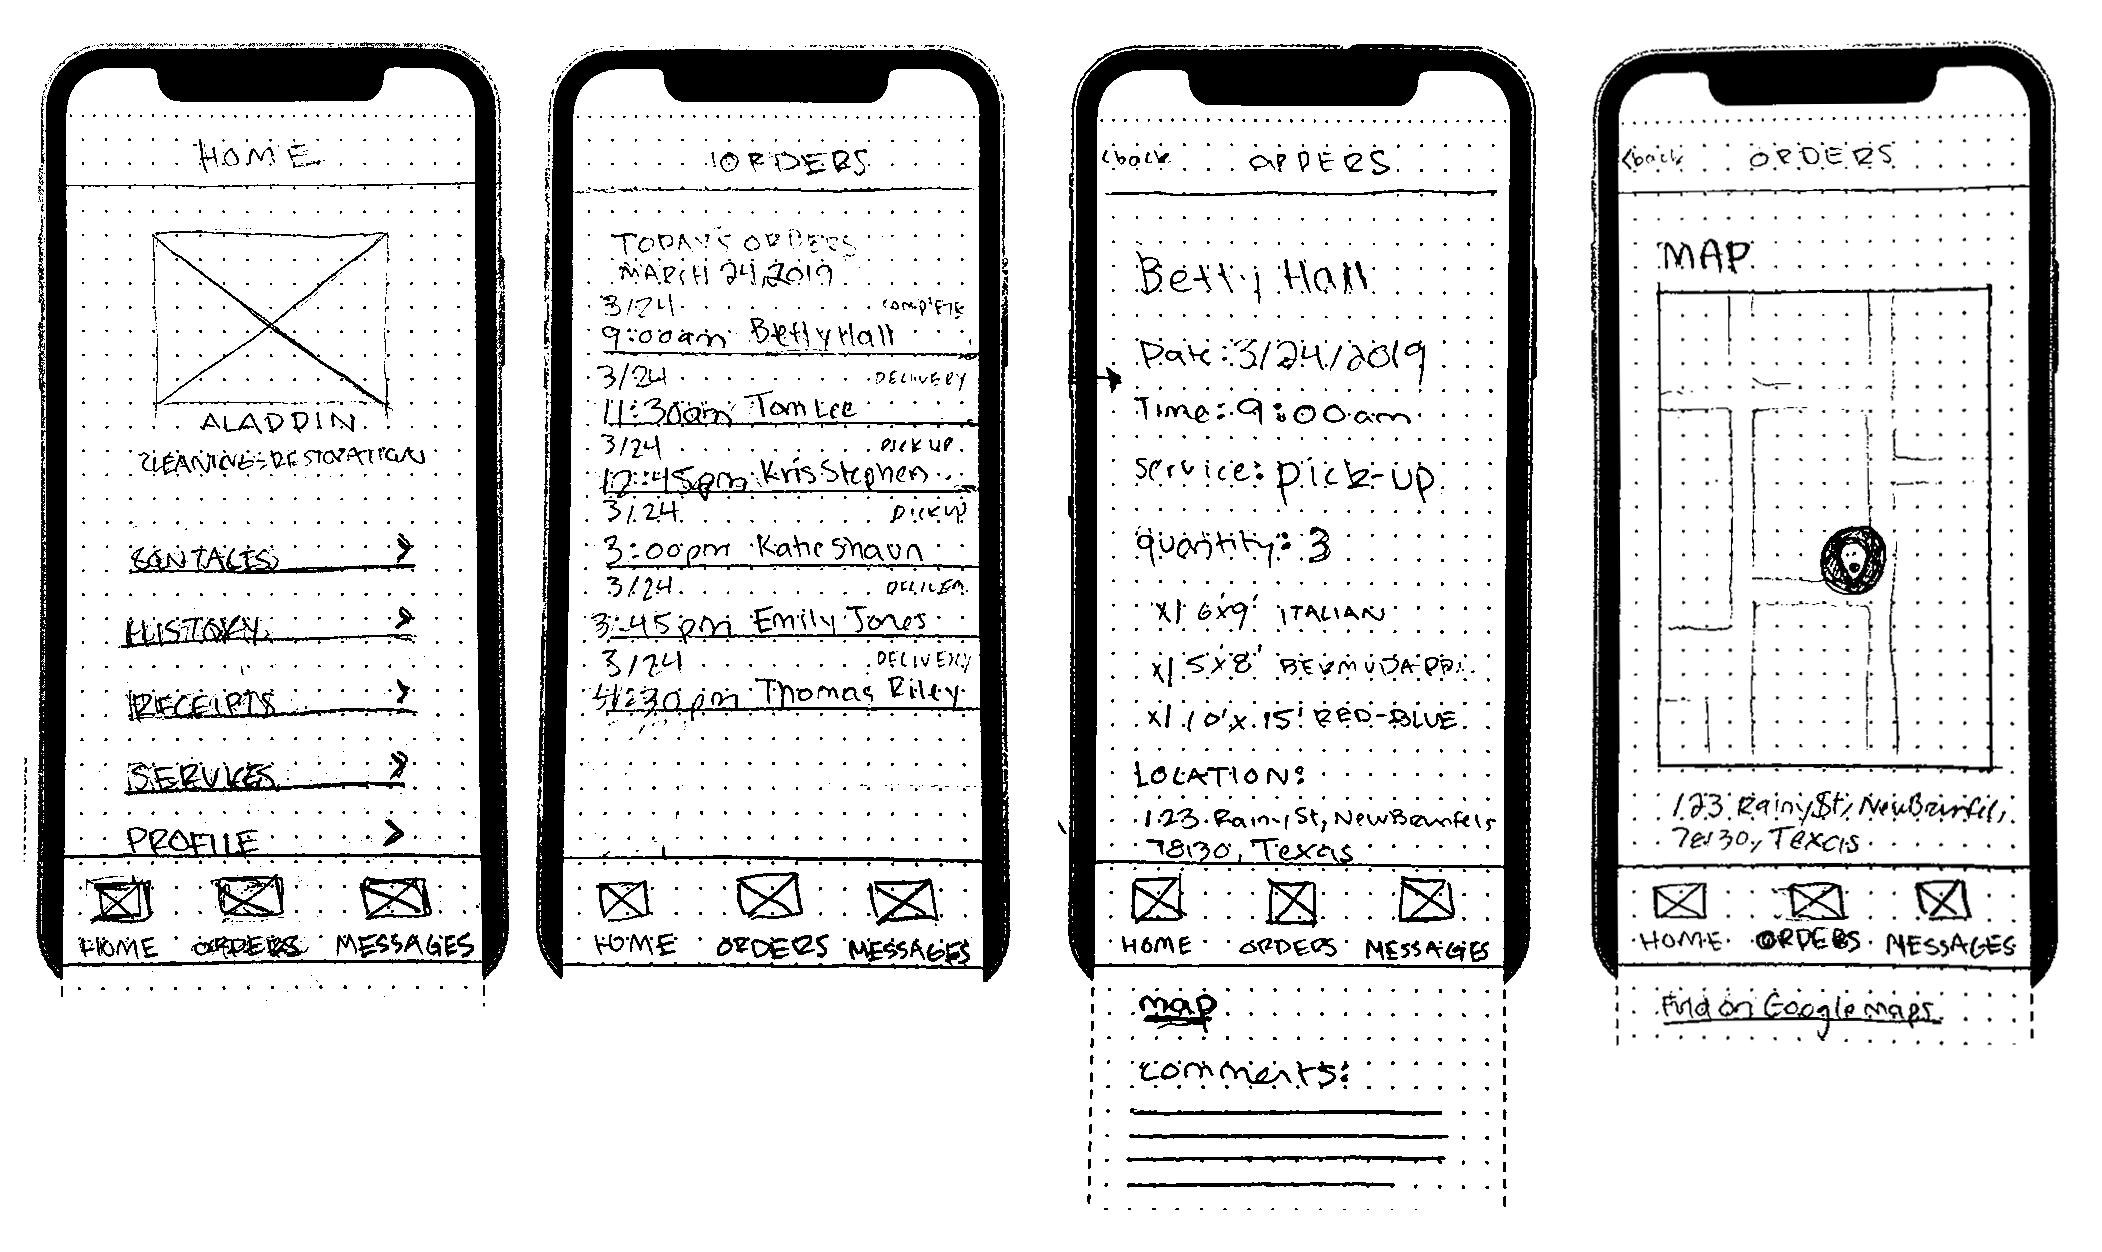 HOME
ALADDIN
CLEANING-RESTORATION
CONTACTS >
HISTORY >
RECEIPTS >
SERVICES >
PROFILE >
HOME ORDERS MESSAGES
ORDERS
TODAY'S ORDERS
MARCH 24, 2019
3/24 COMPLETE
9:00am Betty Hall
3/24 DELIVERY
11:30am Tom Lee
3/24 PICKUP
12:45pm Kris Stephen
3/24 PICKUP
3:00pm Katie Shaun
3/24
3:45pm Emily Jones
3/24 DELIVERY
4:30pm Thomas Riley
HOME ORDERS MESSAGES
<back ORDERS
Betty Hall
Date: 3/24/2019
Time: 9:00am
Service: pick-up
quantity: 3
x1 6x9' ITALIAN
x1 5x8' BERMUDA
x1 10'x15' RED-BLUE
LOCATION:
123 Rainy St, New Braunfels
78130, Texas
HOME ORDERS MESSAGES
map
comments:
<back ORDERS
MAP
123 Rainy St, New Braunfels,
78130, Texas
HOME ORDERS MESSAGES
Find on Google maps